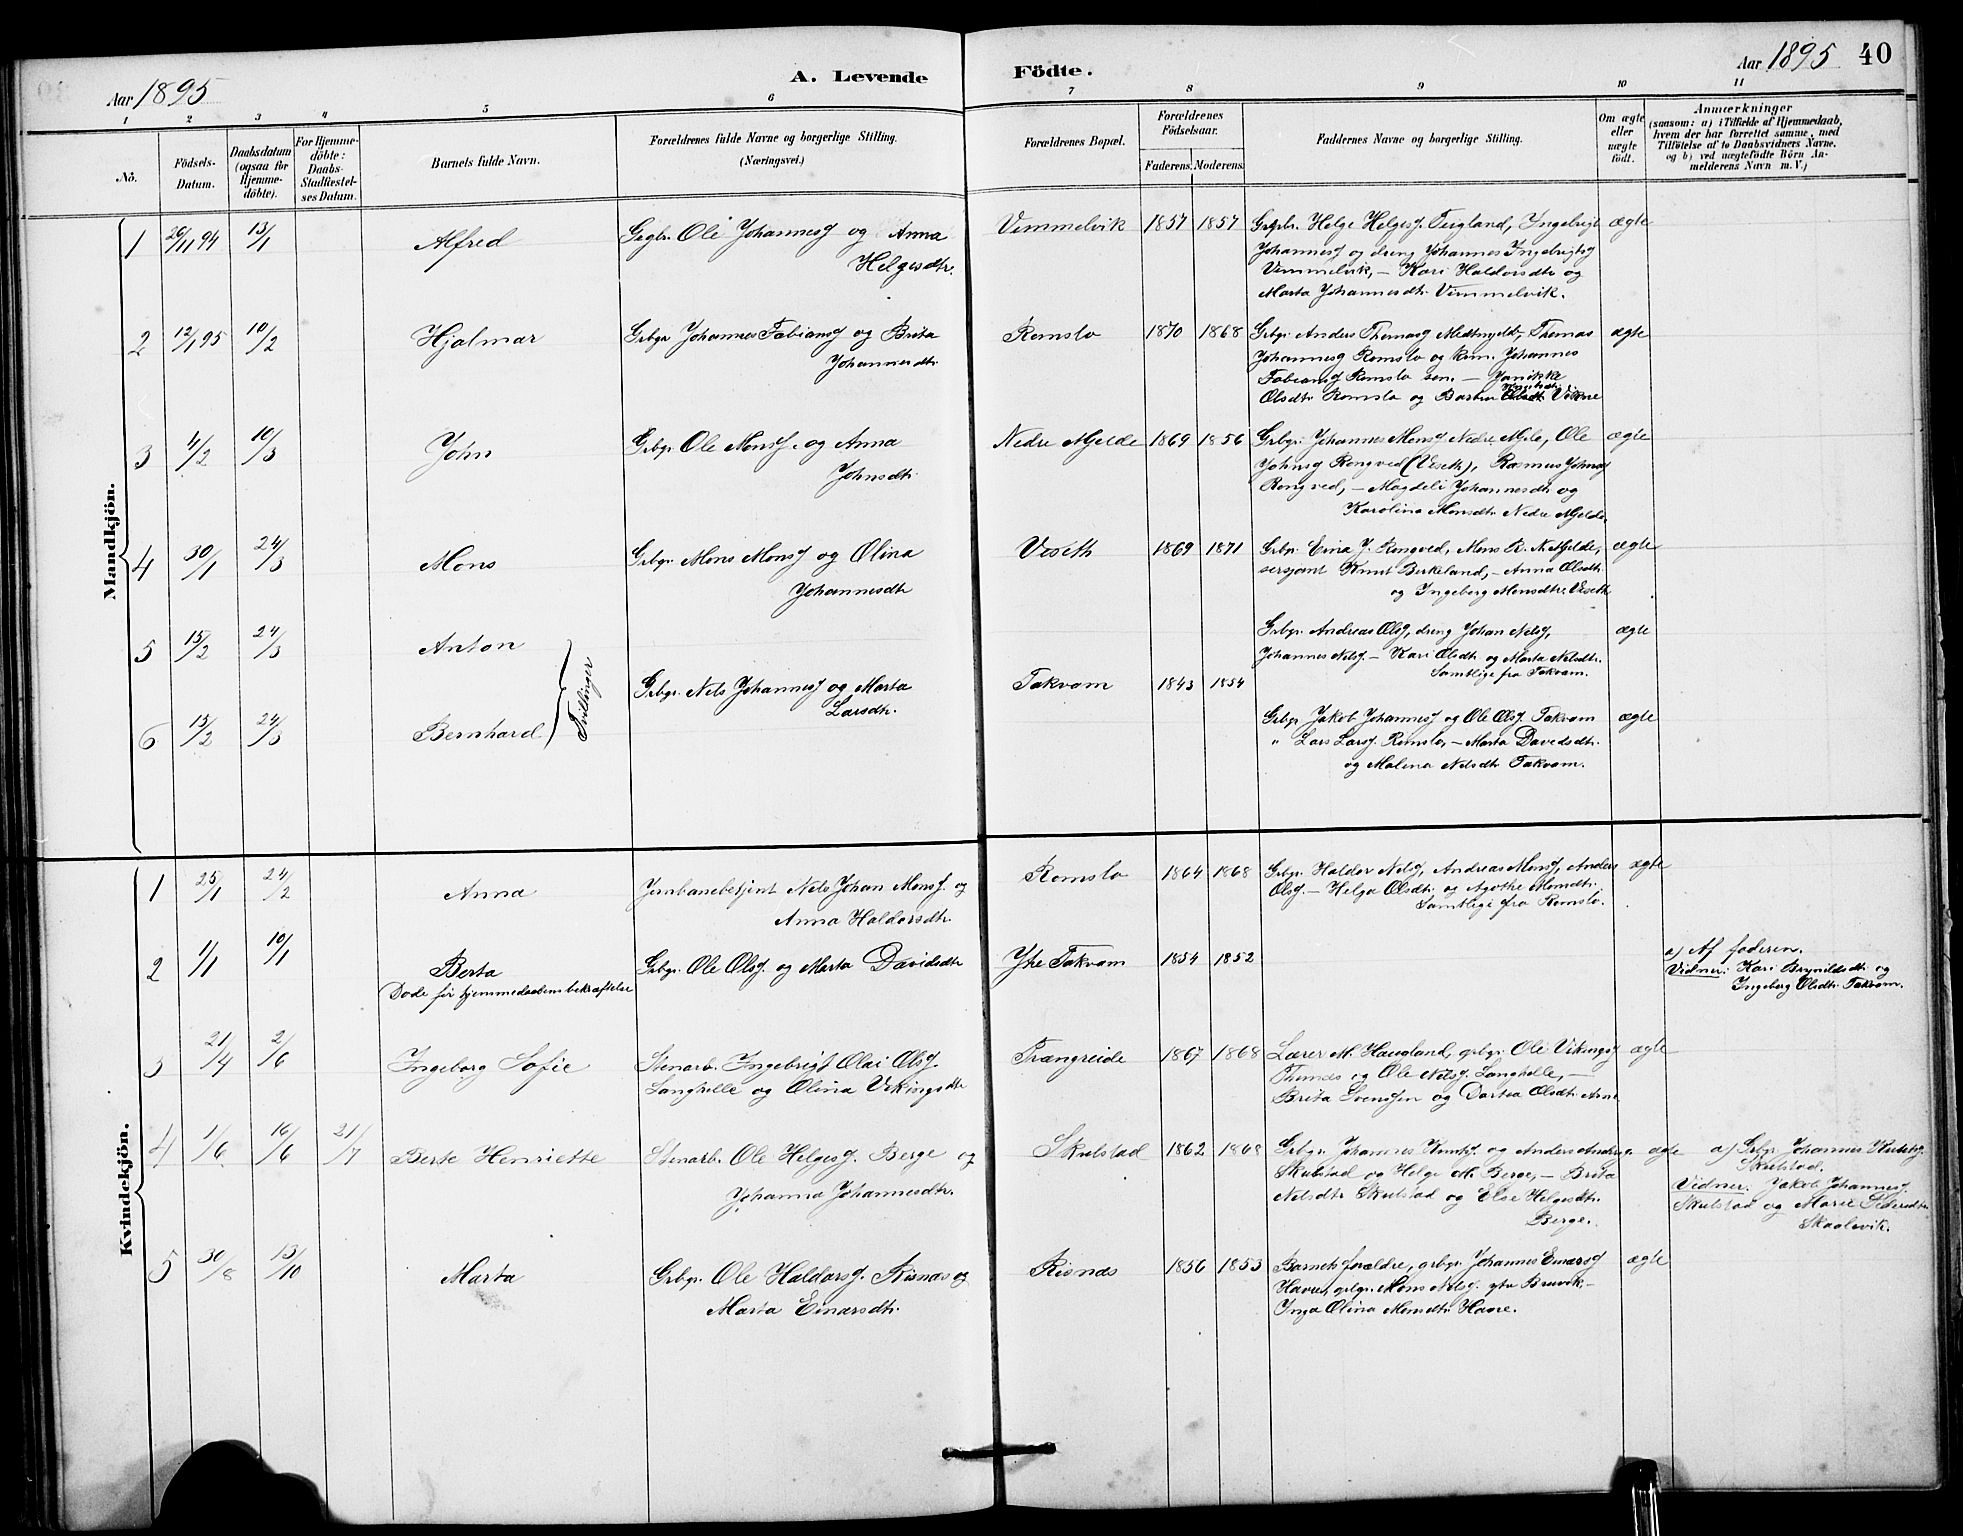 Aar 1895
A. Levende
Födte.
Aar 1895 40
1 2 3 4 5 6 7 8 9 10 11
No.
Födsels-
Datum.
Daabsdatum
(ogsaa for
Hjemme-
döbte).
For Hjemme-
döbte:
Daabs-
Stadfæstel-
ses Datum.
Barnets fulde Navn.
Forældrenes fulde Navne og borgerlige Stilling.
(Næringsvei.)
Forældrenes Bopæl.
Forældrenes
Födselsaar.
Faderens. Moderens.
Faddernes Navne og borgerlige Stilling.
Om ægte
eller
uægte
födt.
Anmærkninger
(saasom: a) i Tilfælde af Hjemmedaab,
hvem der har forrettet samme, med
Tilföielse af to Daabsvidners Navne,
og b) ved uægtefödte Börn An-
melderens Navn m. V.)
Mandkjön.
1 26/11 94 13/1 Alfred Grgbr. Ole Johannesf og Anna
Helgesdtr.
Vimmelvik 1857 1857 Grgbr. Helge Helgesf. Teigland, Ingebrigt ægte
Johannesf og dreng Johannes Ingebrigtsf
Vimmelvik, – Kari Haldorsdtr og
Marta Johannesdtr Vimmelvik.
2 12/1 95 10/2 Hjalmar Grbgr Johannes Fabiansf og Brita
Johannesdtr.
Romslo 1870 1868 Grbgr Anders Thomasf Thomas ægte
Johannesf Romslo og Johannes
Fabiansf Romslo sen. –
Olsdtr Romslo og Vikne
3 4/2 10/3 John Grbgr Ole Monsf. og Anna
Johnsdtr.
Nedre Mjelde 1869 1856 Grbgr. Johannes Monsf Nedre Mjele, Ole ægte
Johnsf Rongved (Veseth), Rasmus Johnsf
Rongved, – Magdeli Johannesdtr og
Karolina Monsdtr Nedre Mjelde.
4 30/1 24/3 Mons Grbgr. Mons Monsf og Olina
Johannesdtr
Veseth 1869 1871 Grbgr. J. Rongved, Mons R. N. Mjelde, ægte
sersjant Knut Birkeland, – Anna Olsdtr.
og Ingeborg Monsdtr. Veseth
5 15/2 24/3 Anton
Grbgr. Andreas Olsf, dreng Johan Nelsf, ægte
Johannes Nelsf – Kari Olsdtr og Marta Nelsdtr.
Samtlige fra Takvam.
Tvillinger
Grbgr. Nels Johannesf og Marta
Larsdtr.
Takvam 1843 1854
6 15/2 24/3 Bernhard
Grbgr Jakob Johannesf og Ole Olsf. Takvam ægte
" Lars Larsf. Romslo, – Marta Davidsdtr.
og Malena Nelsdtr Takvam.
Kvindekjön.
1 25/1 24/2 Anna Jernbanebetjent Nels Johan Monsf og
Anna Haldorsdtr.
Romslo 1864 1868 Grbgr. Haldor Nelsf, Andreas Monsf, Anders ægte
Olsf. – Helga Olsdtr. og Agothe Monsdtr.
Samtlige fra Romslo.
2 1/1 10/1 Berta
Døde før hjemmedaabens bekræftelse
Grbgr. Ole Olsf. og Marta Davidsdtr
Ytre Takvam 1854 1852
a) Af faderen.
Vidner: Kari Brynildsdtr og
Ingeborg Olsdtr Takvam.
3 21/4 2/6 Ingeborg Sofie Stenarb. Ingebrigt Olai Olsf.
Langhelle og Olina Vikingsdtr
Trangreide 1867 1868 Lærer M. Haugland, grbgr. Ole Vikingsf ægte
Thomas og Ole Nelsf. Langhelle, –
Brita Svensen og Dortea Olsdtr. Arne
4 1/6 16/6 21/7 Berte Henriette Stenarb. Ole Helgesf. Berge og
Johanna Johannesdtr.
Skulstad 1862 1868 Grbgr. Johannes Knutsf. og Anders Andersf. ægte
Skulstad og Helge M. Berge, – Brita
Nelsdtr Skulstad og Else Helgesdtr.
Berge.
a) Grbgr Johannes Knutsf.
Skulstad.
Vidner: Jakob Johannesf.
Skulstad og Marie Pedersdtr
Skaalevik.
5 30/8 13/10 Marta Grbgr. Ole Haldorsf. Risnæs og
Marta Einarsdtr.
Risnæs 1856 1853 Barnets forældre, grbgr. Johannes Einarsf ægte
Havre, grbgr. Mons Nelsf. ytre Bruvik, –
Inga Olina Monsdtr Havre.